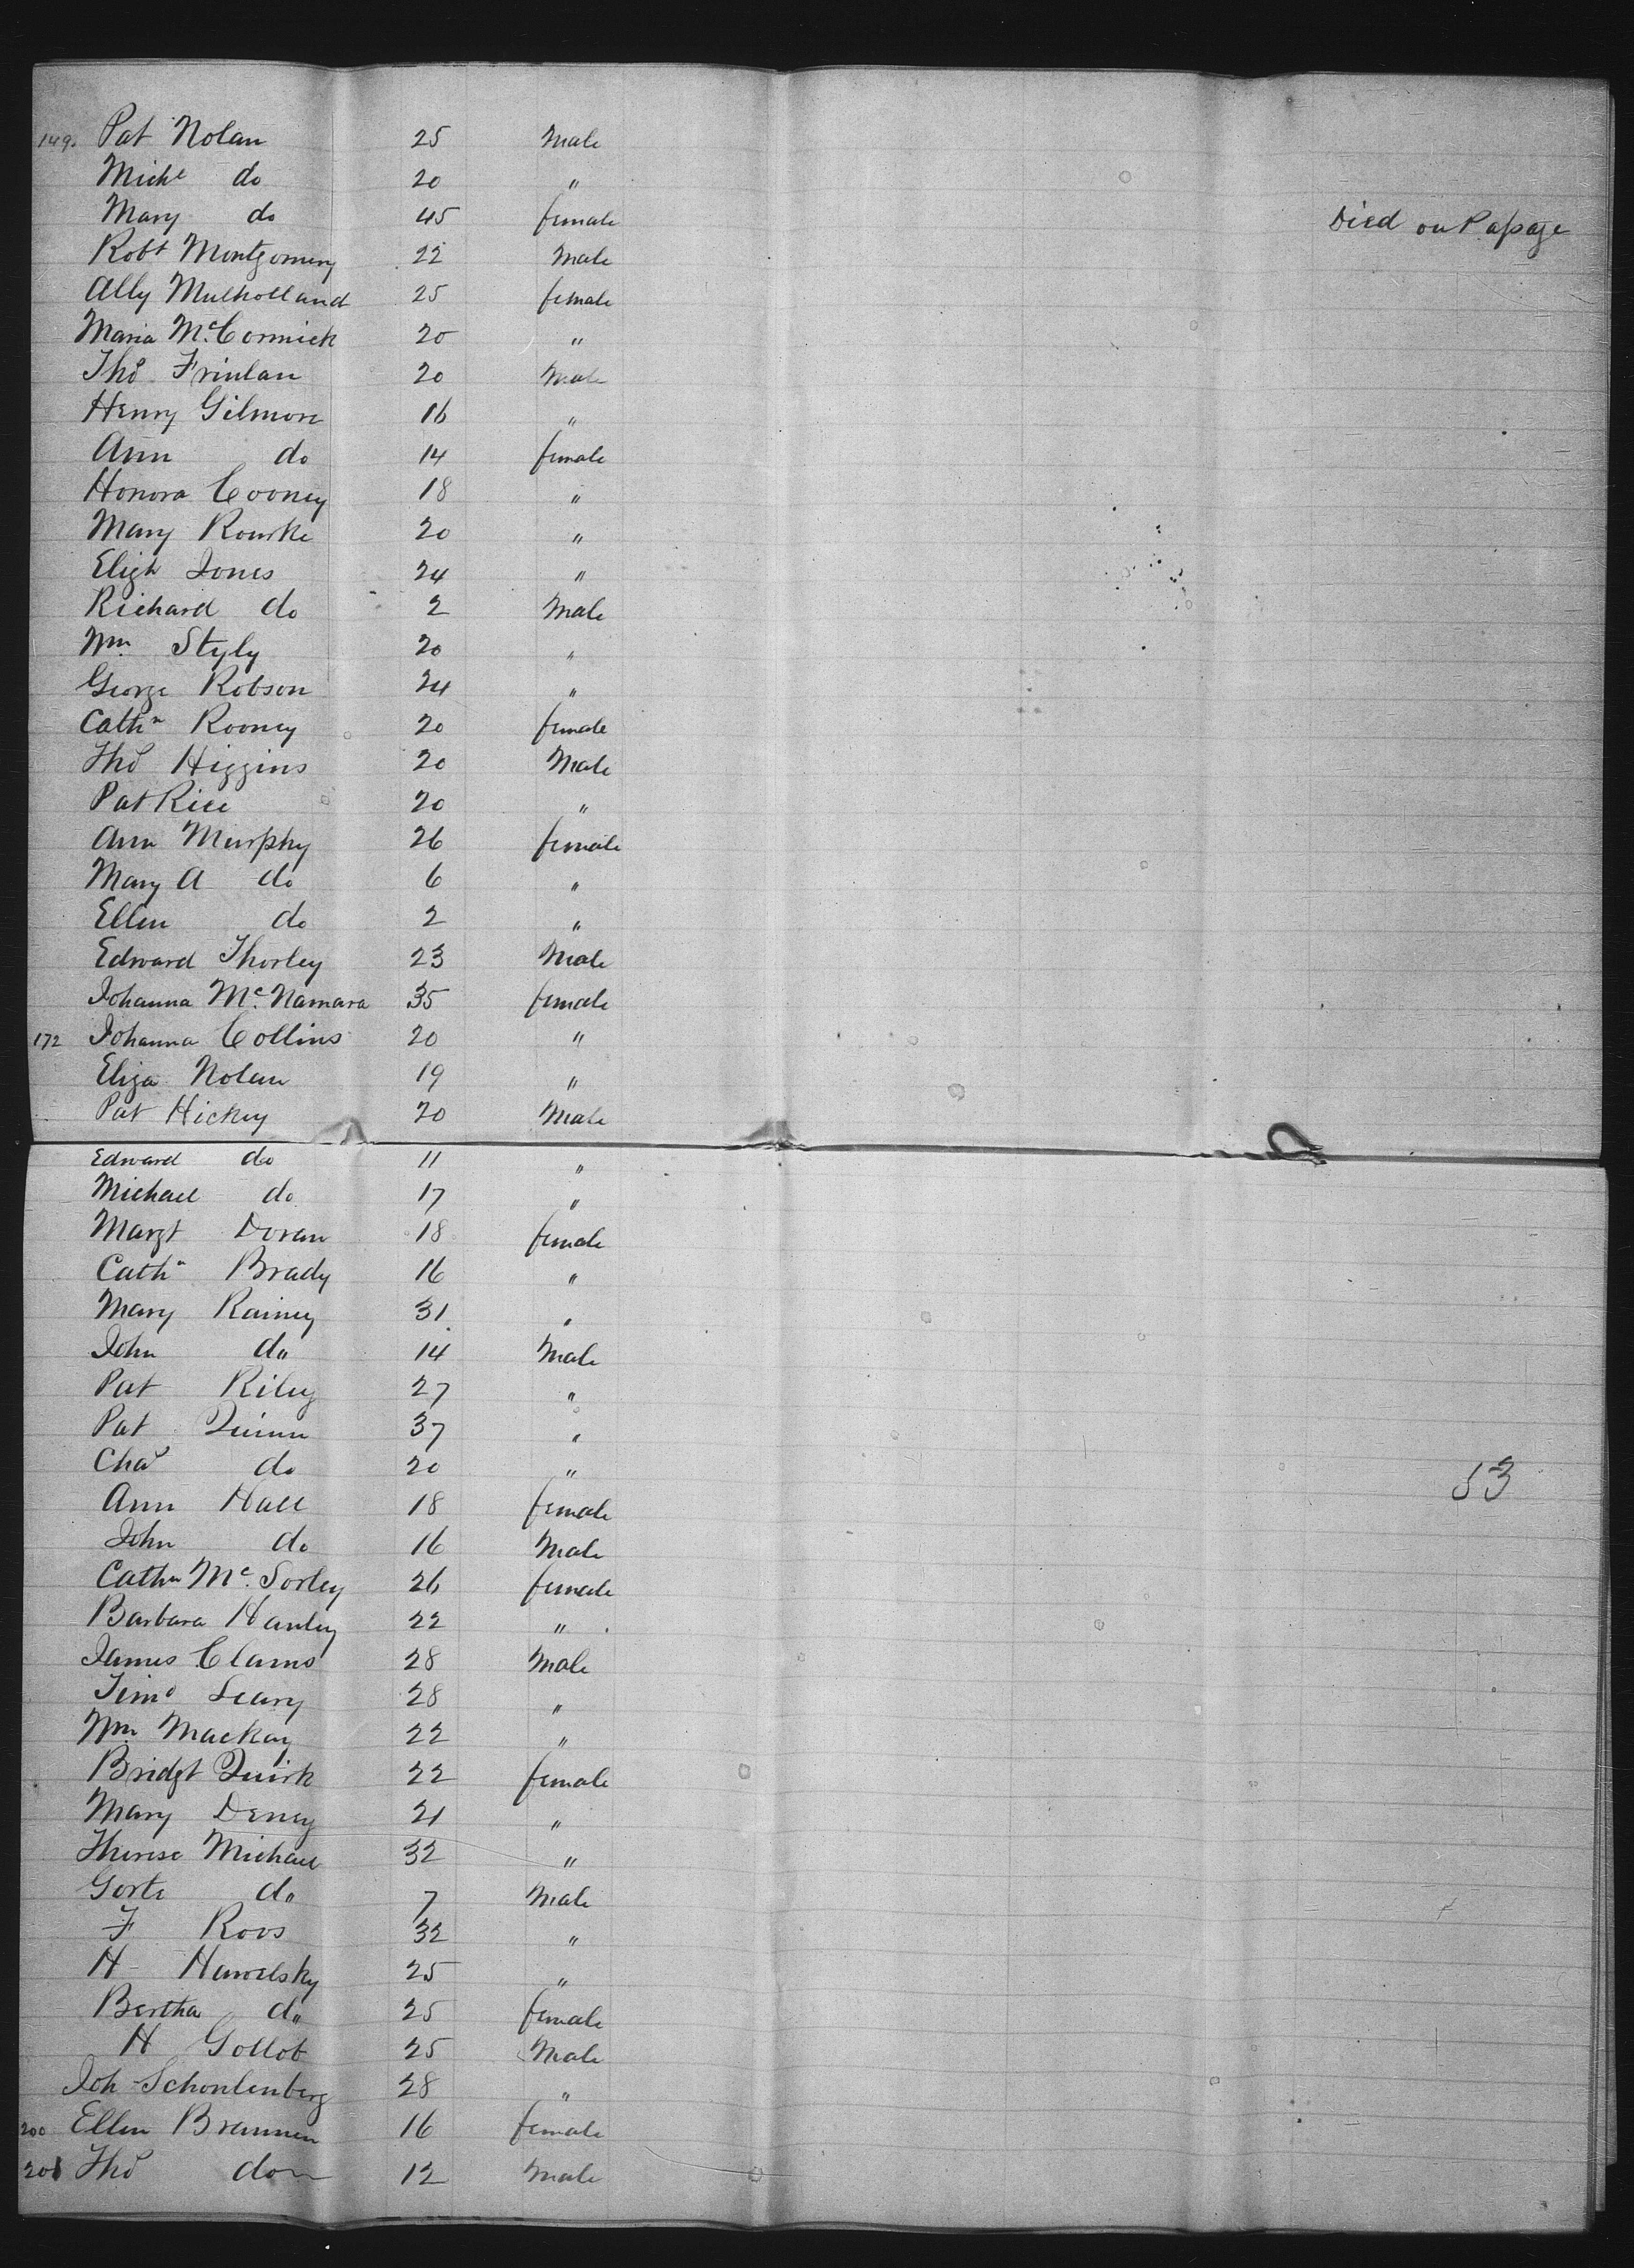 149. Pat Nolan 25 Male
Michl do 20 "
Mary do 45 female Died on Passage
Robt Montgomery 22 Male
Ally Mulholland 25 female
Maria McCormick 20 "
Thos Frinlan 20 Male
Henry Gilmore 16 "
Ann do 14 female
Honora Cooney 18 "
Mary Rourke 20 "
Elizh Jones 24 "
Richard do 2 Male
Wm Styly 20 "
George Robson 24 "
Cathn Rooney 20 female
Thos Higgins 20 Male
Pat Rice 20 "
Ann Murphy 26 female
Mary A do 6 "
Ellen do 2 "
Edward Thorley 23 Male
Johanna McNamara 35 female
172 Johanna Collins 20 "
Eliza Nolan 19 "
Pat Hickey 20 Male
Edward do 11 "
Michael do 17 "
Margt Doran 18 female
Cathn Brady 16 "
Mary Rainey 31 "
John do 14 Male
Pat Riley 27 "
Pat Quinn 37 "
Chas do 20 "
53
Ann Hall 18 female
John do 16 Male
Cathn McSorley 26 female
Barbara Hanley 22 "
James Clams 28 Male
Timo Leary 28 "
Wm Mackay 22 "
Bridgt Quirk 22 female
Mary Deney 21 "
Therese Michael 32 "
Gorte do 7 Male
F Roos 32 "
H Hawelsky 25 "
Bertha do 25 female
H Gollob 25 Male
Joh Schonlenberg 28 "
200 Ellen Brannen 16 female
201 Thos do 12 Male